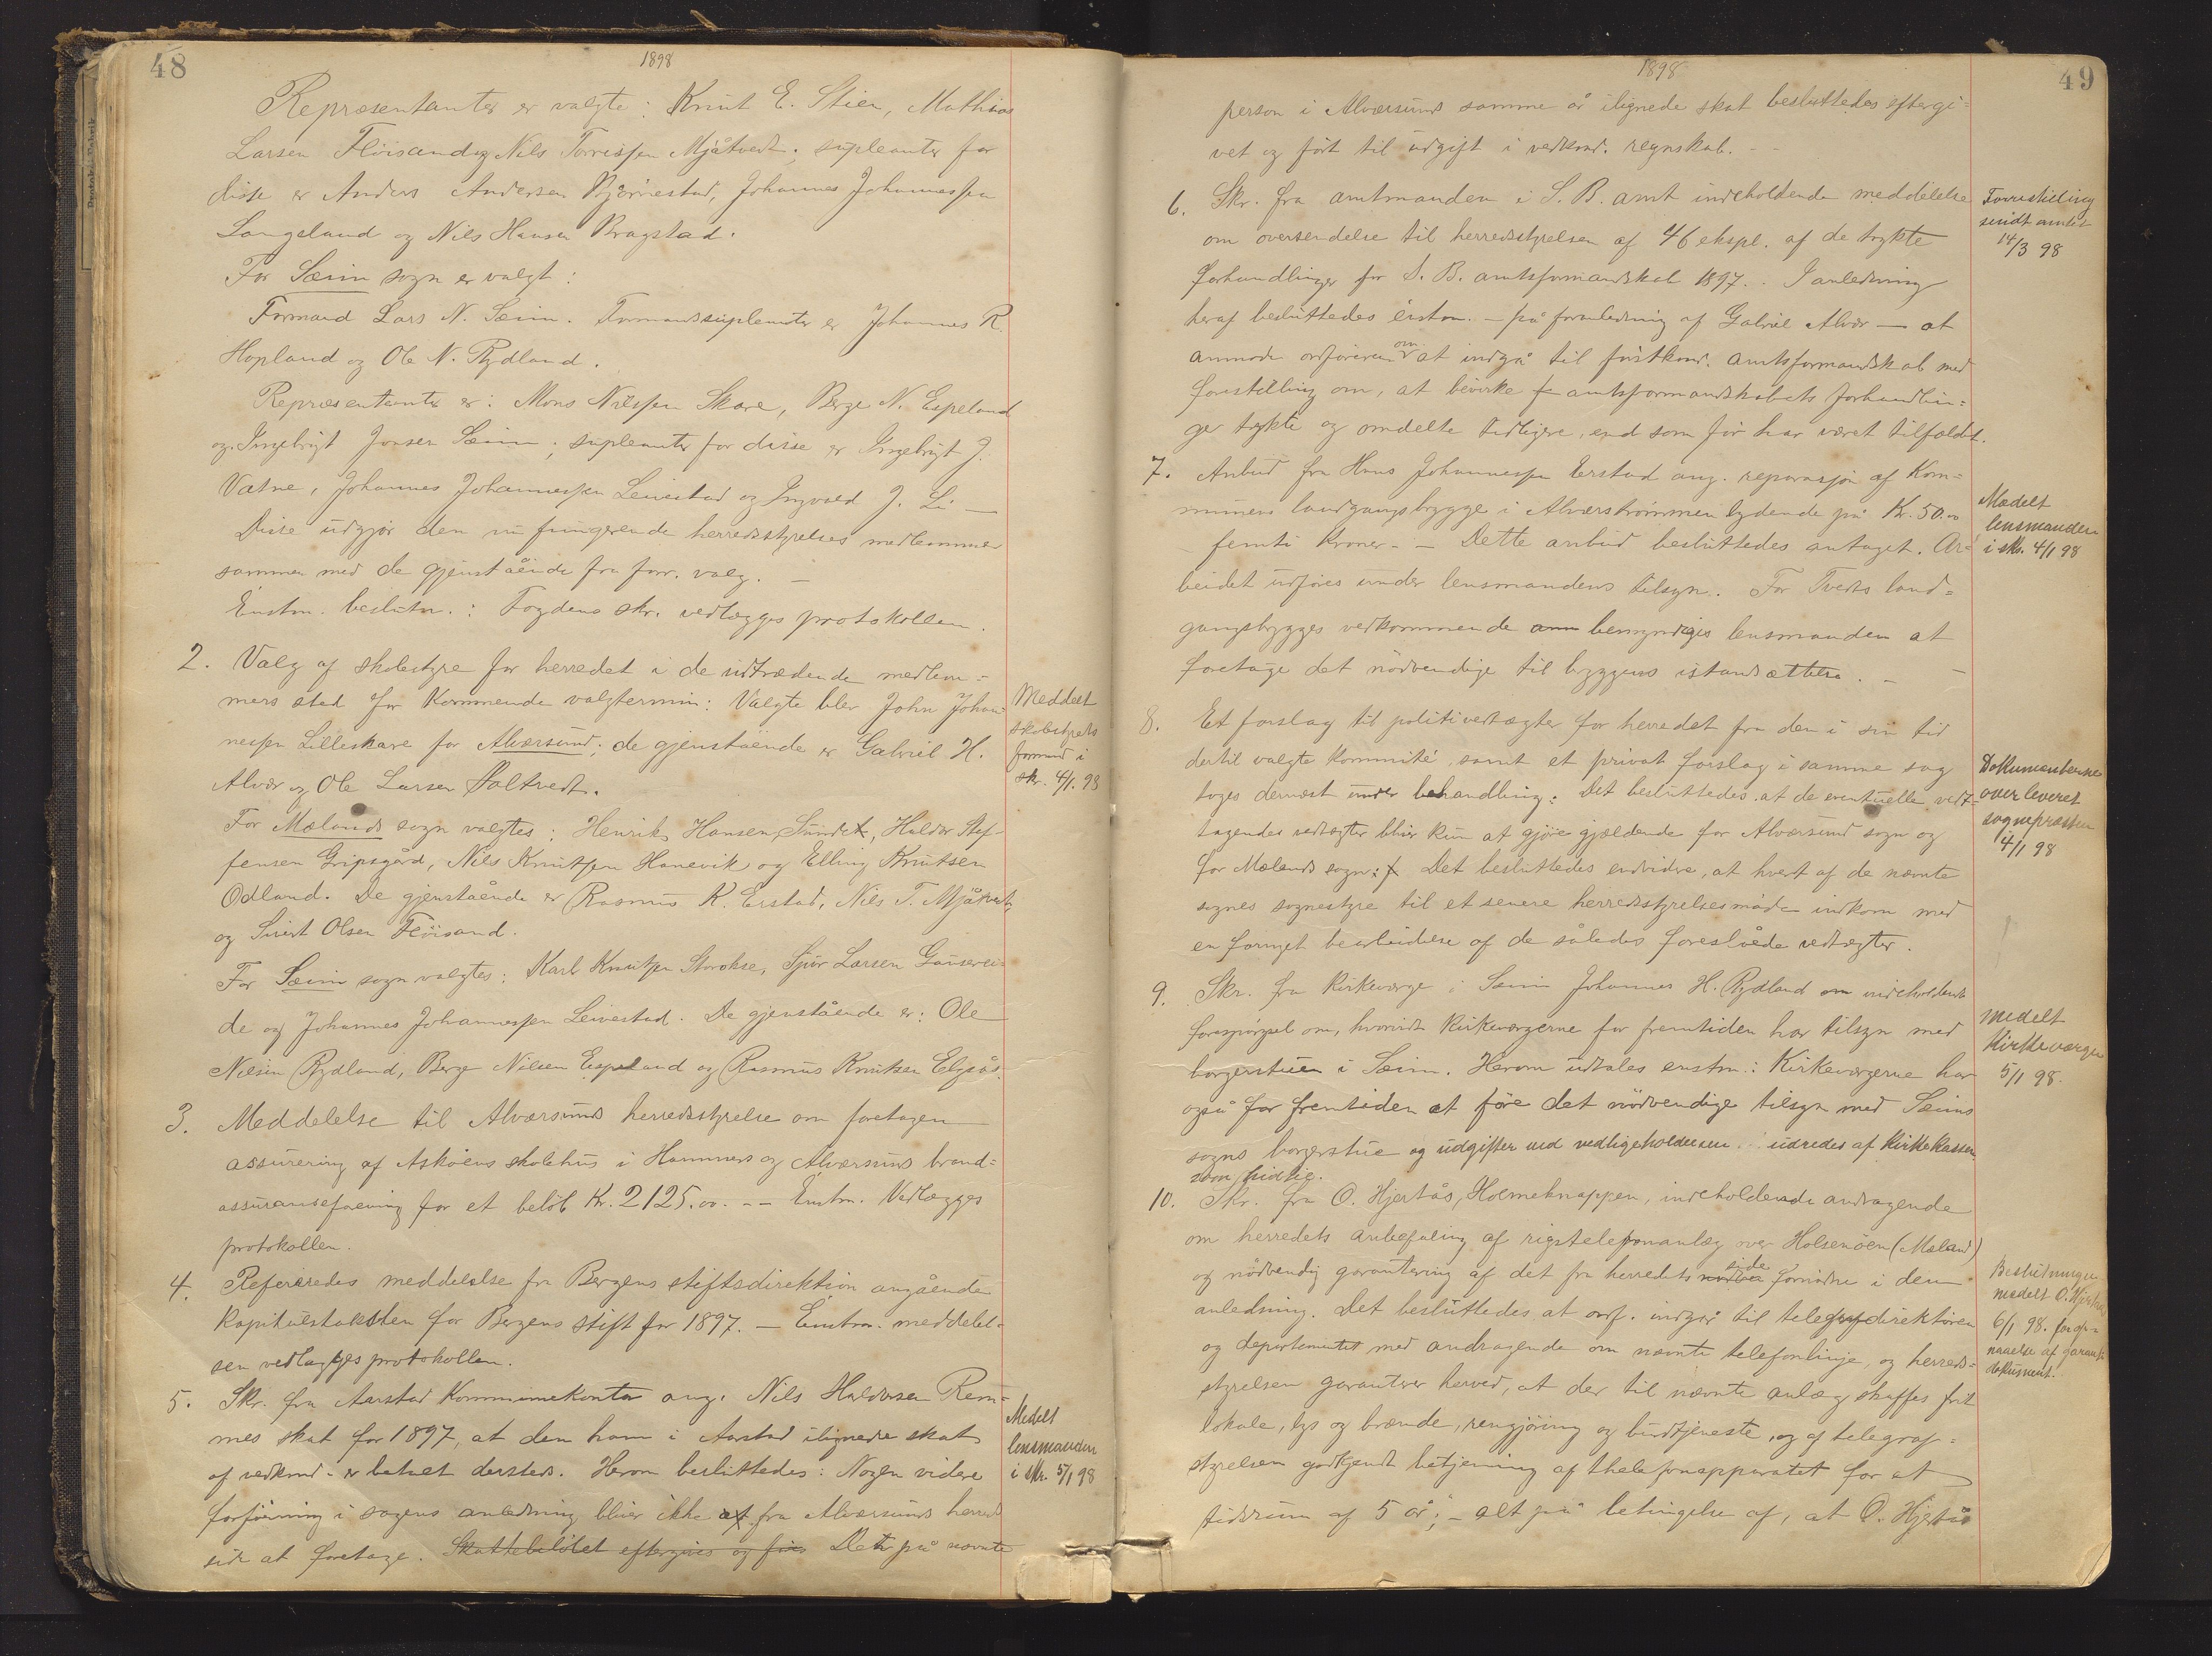 48
1898
Repræsentanter er valgte: Knut E. Stien, Mathias
Larsen Flöisand og Nils Torrissen Mjåtvedt; supleanter for
disse er Anders Andersen Bjørnestad, Johannes Johannessen
Langeland og Nils Hansen Bragstad.
For Sæim sogn er valgt:
Formand Lars N. Sæim. Formandssupleanter er Johannes R.
Hopland og Ole N. Rydland.
Repræsentanter er: Mons Nilssen Skare, Berge N. Espeland
og Ingebrigt Jonsen Sæim; supleanter for disse er Ingebrigt J.
Vatne, Johannes Johannessen Leivestad og Ingvald J. Li —
Disse udgjør den nu fungerende herredsstyrelses medlemmer
sammen med de gjenstående fra forr. valg. —
Enstm. beslutn.: Fogdens skr. vedlægges protokollen.
2. Valg af skolestyre for herredet i de udtrædende medlem-
mers sted for kommende valgtermin: Valgte blev John Johan-
nessen Lilleskare for Alværsund; de gjenstående er Gabriel H.
Alvær og Ole Larsen Saltvedt.
Meddelt
skolestyrets
formand i
skr. 4/1. 98
For Mælands sogn valgtes: Henrik Hansen Sundet, Haldor Stef-
fensen Gripsgård, Nils Knutsen Hanevik og Elling Knutsen
Odland. De gjenstående er Rasmus K. Erstad, Nils T. Mjåtvedt
og Sivert Olsen Flöisand.
For Sæim sogn valgtes: Karl Knutsen Storokse, Sjur Larsen Gauserei-
de og Johannes Johannessen Leivestad. De gjenstående er: Ole
Nilsen Rydland, Berge Nilsen Espeland og Rasmus Knutsen Elgsås.
3. Meddelelse til Alværsunds herredsstyrelse om foretagen
assurering af Askøens skolehus i Hammers og Alværsunds brand-
assuranseforening for et beløb Kr. 2125.00. -- Enstm. Vedlægges
protokollen.
4. Refereredes meddelelse fra Bergens stiftsdirektion angående
kapitelstaksten for Bergens stift for 1897. — Enstm. meddelel-
sen vedlægges protokollen.
5. Skr. fra Aarstad Kommunekontor ang. Nils Haldorsen Rem-
mes skat for 1897, at den ham i Aarstad ilignede skat
af vedkmd. er betalt dersteds. Herom besluttedes: Nogen videre
forføining i sagens anledning bliver ikke at fra Alværsunds herreds
side at foretage. Skattebeløbet eftergives og føres Det på nævnte
Medelt
lensmanden
i skr. 5/1 98
49
1898
person i Alværsund samme år ilignede skat besluttedes eftergi-
vet og ført til udgift i vedkomd. regnskab. --
6. Skr. fra amtmanden i S. B. amt indeholdende meddelelse
om oversendelse til herredsstyrelsen af 46 ekspl. af de trykte
forhandlinger for S. B. amtsformandskab 1897. - I anledning
heraf besluttedes enstm. — på foranledning af Gabriel Alvær — at
anmode ordføreren om at indgå til førstkomd. amtsformandskab med
forestilling om, at bevirke fr amtsformandskabets forhandlin-
ger trykte og omdelte tidligere, end som før har været tilfældet.
Forestilling
sendt amtet
14/3 98
7. Anbud fra Hans Johannessen Erstad ang. reparasjon af Kom-
munens landgangsbrygge i Alværstrømmen lydende på Kr. 50.00
- femti Kroner - — Dette anbud besluttedes antaget. Ar-
beidet udføres under lensmandens tilsyn. For Tvedts land-
gangsbrygges vedkommende ann bemyndiges lensmanden at
foretage det nødvendige til bryggens istandsættelse. —
Medelt
lensmanden
i skr. 4/1 98
8. Et forslag til politivedtægter for herredet fra den i sin tid
dertil valgte kommité, samt et privat forslag i samme sag
toges dernæst under behandling. Det besluttedes at de eventuelle vedt-
tagendes vedtægter bliver kun at gjøre gjældende for Alværsund sogn og
for Mælands sogn. Det besluttedes endvidere, at hvert af de nævnte
sognes sognestyre til et senere herredsstyrelsesmøde indkom med
en fornyet bearbeidelse af de således foreslåede vedtægter.
Dokumenterne
overleveret
sognepræsten
14/1 98
9. Skr. fra Kirkeværge i Sæim Johannes H. Rydland om indeholdende
forespørgsel om, hvorvidt kirkeværgerne for fremtiden har tilsyn med
borgerstuen i Sæim. Herom udtales enstm.: Kirkeværgerne har
også for fremtiden at føre det nødvendige tilsyn med Sæims
sogns borgerstue og udgifter ved vedligeholdelsen udredes af Kirkekassen
som hidtil.
Medelt
Kirkeværgen
5/1 98.
10. Skr. fra O. Hjertås, Holmeknappen, indeholdende andragende
om herredets anbefaling af rigstelefonanlæg over Holsenøen (Mæland)
og nødvendig garantering af det fra herredets side fornødne i den
anledning. Det besluttedes at ordf. indgår til telegrafdirektøren
og departementet med andragende om nævnte telefonlinje, og herreds-
styrelsen garanterer herved, at der til nævnte anlæg skaffes frit
lokale, lys og brænde, rengjøring og budtjeneste, og af telegraf-
styrelsen godkjendt betjening af thelefonapparatet for at
tidsrum af 5 år; — alt på betingelse af, at O. Hjertås
Beslutningen
medelt O. Hjertås
6/1 98. for op-
naaelse af garanti
dokument.